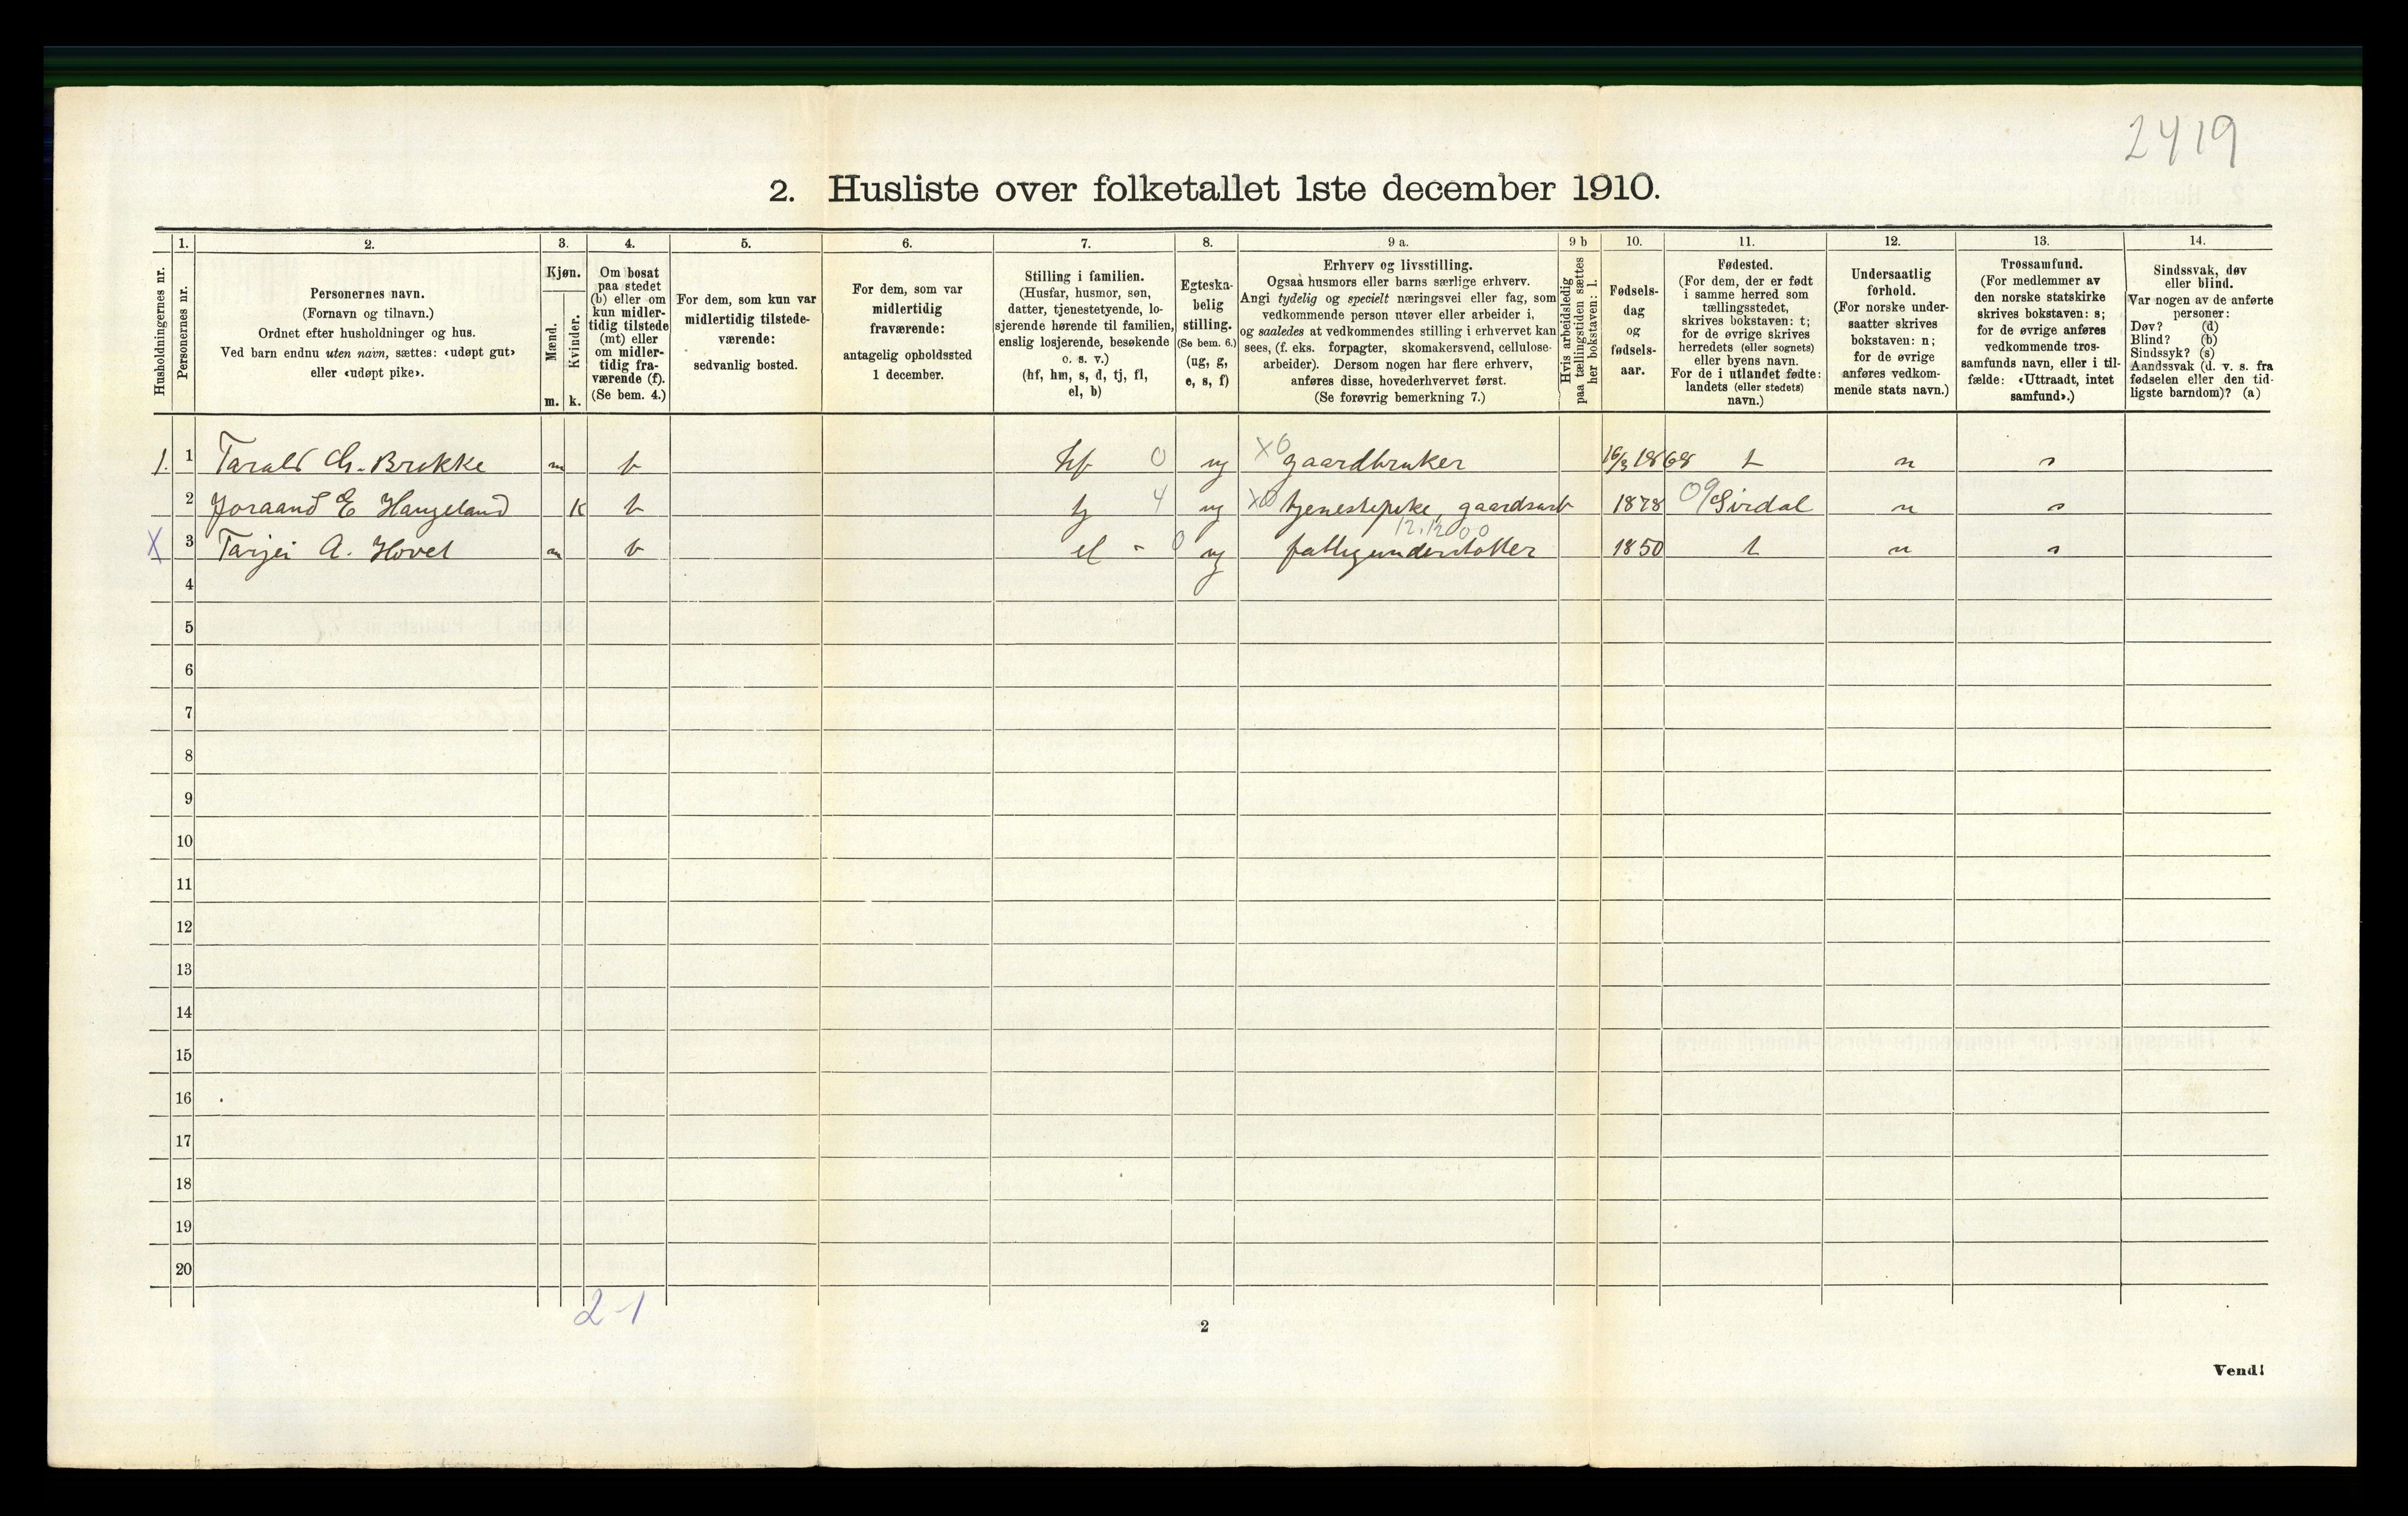 2419
2. Husliste over folketallet 1ste december 1910.
1. 2. 3. 4. 5. 6. 7. 8. 9 a. 9 b 10. 11. 12. 13. 14.
Husholdningernes nr.
Personernes nr.
Personernes navn.
(Fornavn og tilnavn.)
Ordnet efter husholdninger og hus.
Ved barn endnu uten navn, sættes: «udøpt gut»
eller «udøpt pike».
Kjøn.
Mænd.
Kvinder.
m. k.
Om bosat
paa stedet
(b) eller om
kun midler-
tidig tilstede
(mt) eller
om midler-
tidig fra-
værende (f).
(Se bem. 4.)
For dem, som kun var
midlertidig tilstede-
værende:
sedvanlig bosted.
For dem, som var
midlertidig
fraværende:
antagelig opholdssted
1 december.
Stilling i familien.
(Husfar, husmor, søn,
datter, tjenestetyende, lo-
sjerende hørende til familien,
enslig losjerende, besøkende
o. s. v.)
(hf, hm, s, d, tj, fl,
el, b)
Egteska-
belig
stilling.
(Se bem. 6.)
(ug, g,
e, s, f)
Erhverv og livsstilling.
Ogsaa husmors eller barns særlige erhverv.
Angi tydelig og specielt næringsvei eller fag, som
vedkommende person utøver eller arbeider i,
og saaledes at vedkommendes stilling i erhvervet kan
sees, (f. eks. forpagter, skomakersvend, cellulose-
arbeider). Dersom nogen har flere erhverv,
anføres disse, hovederhvervet først.
(Se forøvrig bemerkning 7.)
Hvis arbeidsledig
paa tællingstiden sættes
her bokstaven: l.
Fødsels-
dag
og
fødsels-
aar.
Fødested.
(For dem, der er født
i samme herred som
tællingsstedet,
skrives bokstaven: t;
for de øvrige skrives
herredets (eller sognets)
eller byens navn.
For de i utlandet fødte:
landets (eller stedets)
navn.)
Undersaatlig
forhold.
(For norske under-
saatter skrives
bokstaven: n;
for de øvrige
anføres vedkom-
mende stats navn.)
Trossamfund.
(For medlemmer av
den norske statskirke
skrives bokstaven: s;
for de øvrige anføres
vedkommende tros-
samfunds navn, eller i til-
fælde: «Uttraadt, intet
samfund».)
Sindssvak, døv
eller blind.
Var nogen av de anførte
personer:
Døv? (d)
Blind? (b)
Sindssyk? (s)
Aandssvak (d. v. s. fra
fødselen eller den tid-
ligste barndom)? (a)
1. 1 Tarald Ch. Brekke m b hf 0 ug X0 gaardbruker 16/3 1868 t n s
2 Joraand E Haugeland K b tj 4 ug X0 tjenestepike, gaardsarb 1878 09 Sirdal n s
12.12000
X 3 Tarjei A. Hovet m b el - 0 ug fattigunderstøttet 1850 t n s
4
5
6
7
8
9
10
11
12
13
14
15
16
17
18
19
20
2-1
2
Vend!